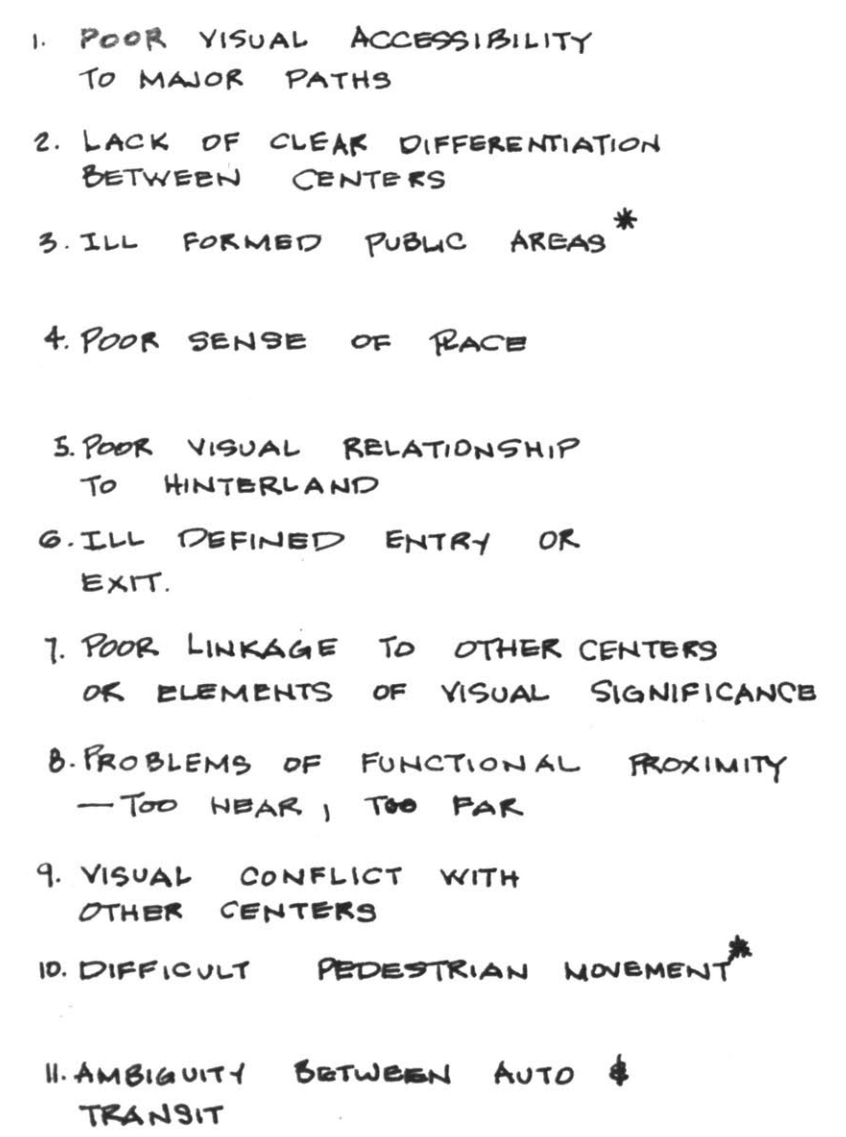 1. POOR VISUAL ACCESSIBILITY
TO MAJOR PATHS
2. LACK OF CLEAR DIFFERENTIATION
BETWEEN CENTERS
3. ILL FORMED PUBLIC AREAS*
4. POOR SENSE OF PLACE
5. POOR VISUAL RELATIONSHIP
TO HINTERLAND
6. ILL DEFINED ENTRY OR
EXIT.
7. POOR LINKAGE TO OTHER CENTERS
OR ELEMENTS OF VISUAL SIGNIFICANCE
8. PROBLEMS OF FUNCTIONAL PROXIMITY
— TOO NEAR, TOO FAR
9. VISUAL CONFLICT WITH
OTHER CENTERS
10. DIFFICULT PEDESTRIAN MOVEMENT*
11. AMBIGUITY BETWEEN AUTO &
TRANSIT